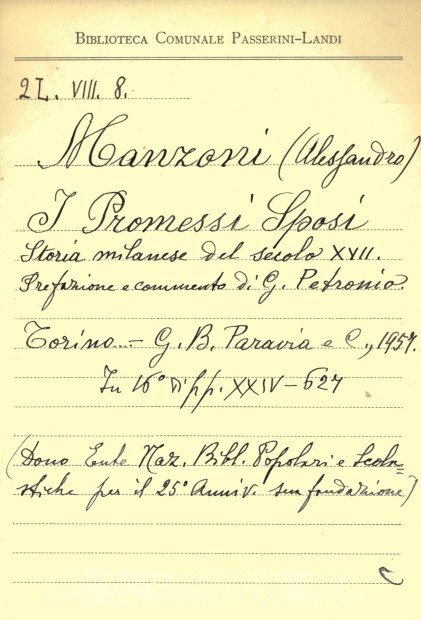 BIBLIOTECA COMUNALE PASSERINI-LANDI
2L. VIII. 8.
Manzoni (Alessandro)
I Promessi Sposi
Storia milanese del secolo XVII.
Prefazione e commento di G. Petronio.
Torino. - G. B. Paravia e C., 1957.
In 16° di pp. XXIV-627
(Dono Ente Naz. Bibl. Popolari e Scola=
stiche per il 25° Anniv. sua fondazione)
C